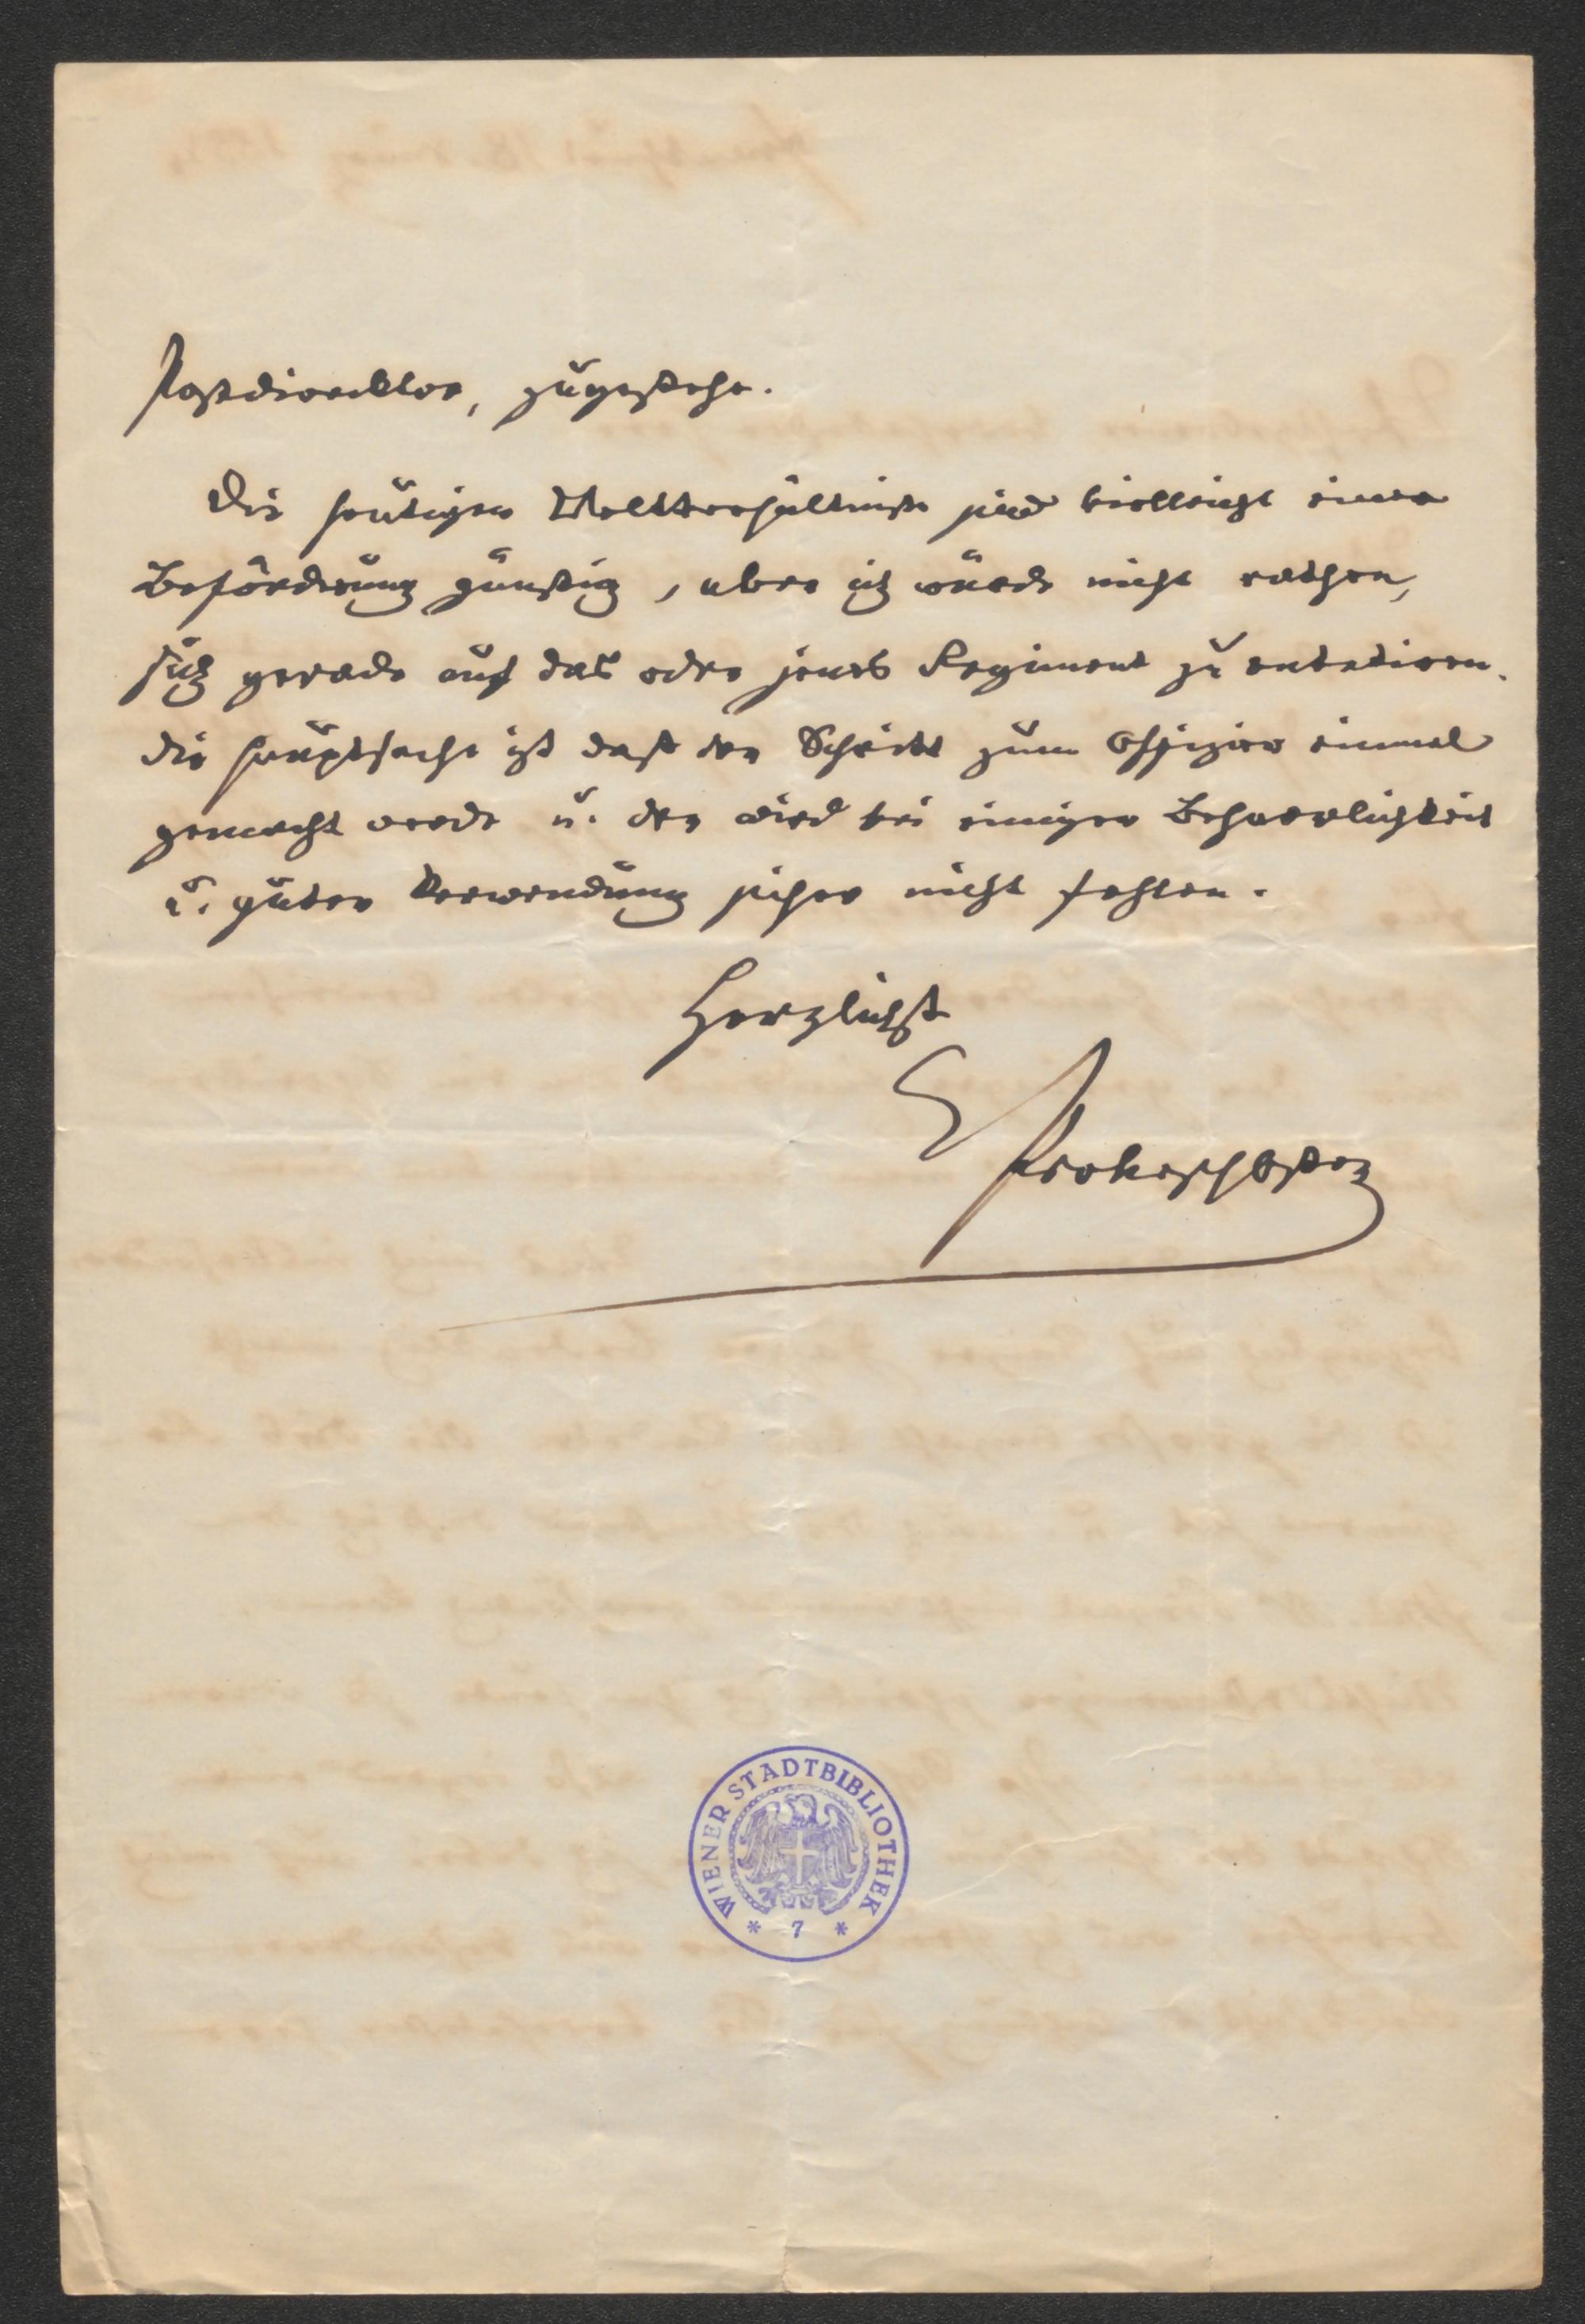 Postdirecktor, zugestehe.
Die heutigen Weltverhältniße sind vielleicht einer
Beförderung günstig, aber ich würde nicht rathen,
sich gerade auf das oder jenes Regiment zu
die Hauptsache ist daß der Schritt zum Offizier einmal
gemacht werde u. der wird bei einiger Beharrlichkeit
u. guter Verwendung sicher nicht fehlen.
Herzlichst
Prokesch Osten
WIENER STADTBIBLIOTHEK
* 7 *